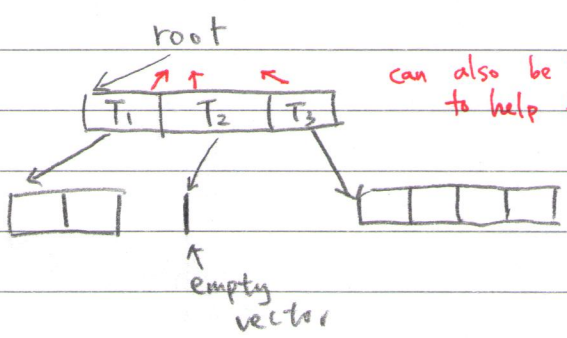 root
can also be
to help
T₁ T₂ T₃
empty
vector